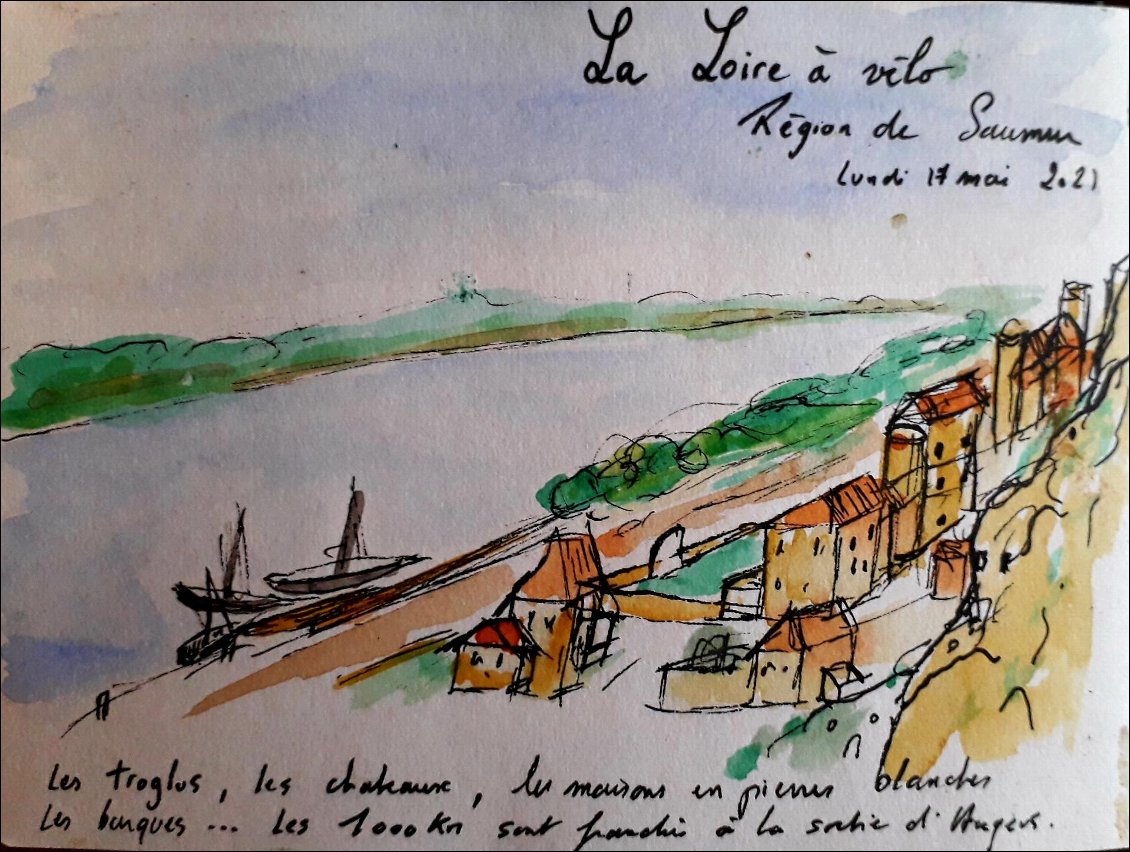 La Loire à vélo
Région de Saumur
Lundi 17 mai 2021
Les troglos, les chateaux, les maisons en pierres blanches
Les barques ... Les 1000 Km sont franchis à la sortie d'Angers.